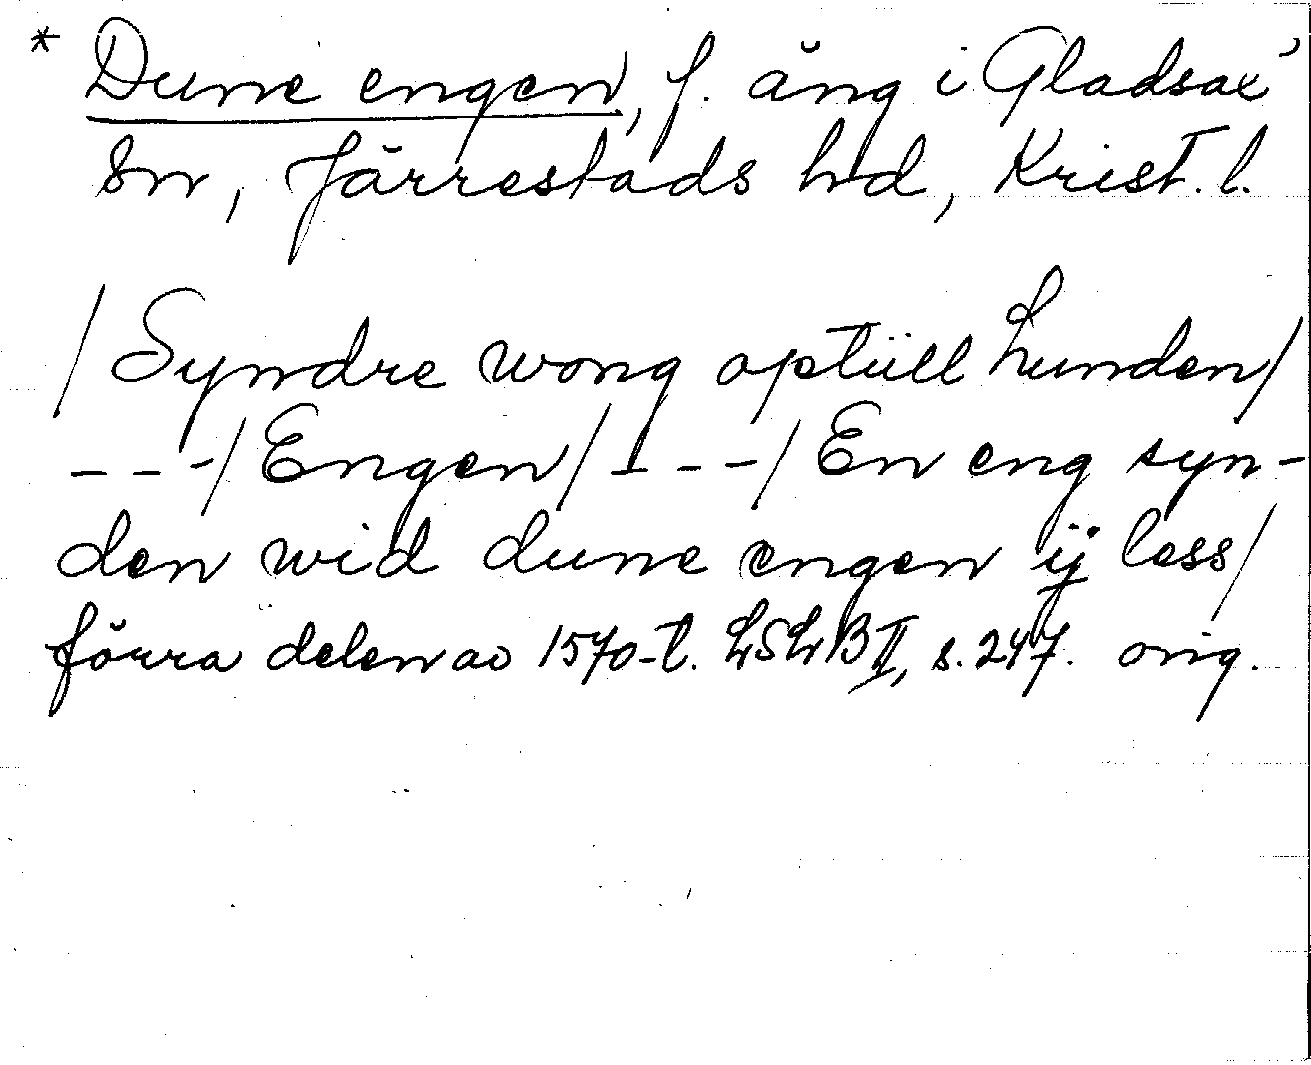 * Dune engen, f. äng i Gladsax'
sn, Järrestads hd, Krist. l.
/ Syndre wong optüll Lunden /
- - - / Engen / - - - / En eng syn-
den wid dune engen ij less /
förra delen av 1570-t. LSLB II, s. 247. orig.